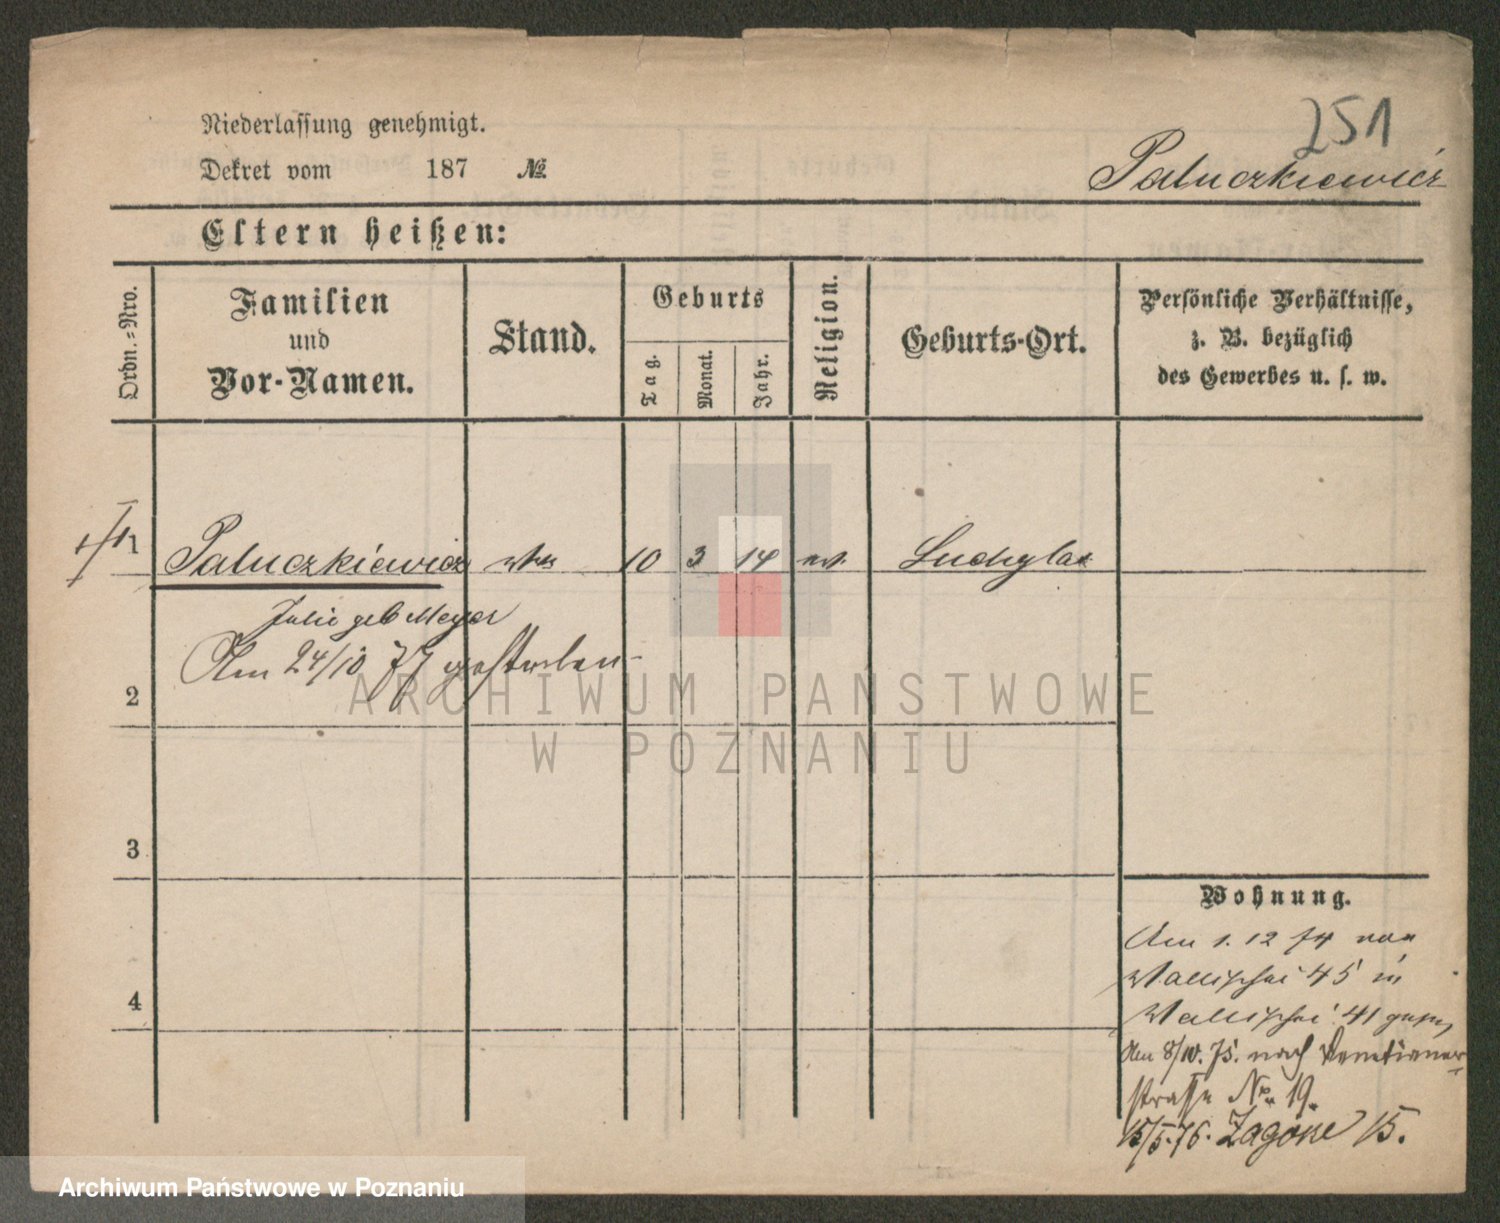 251
Niederlassung genehmigt.
Dekret vom 187 №
Paluczkiewicz
Eltern heißen:
Ordn.-Nro.
Familien
und
Vor-Namen.
Stand.
Geburts
Tag.
Monat.
Jahr.
Religion.
Geburts-Ort.
Persönliche Verhältnisse,
z. B. bezüglich
des Gewerbes u. s. w.
1 Paluczkiewicz 10 3 14
Julie geb Meyer
Am 24/10 77 gestorben
2
3
4
Wohnung.
Am 1. 12 74 von
Wallischei 45 in
Wallischei 41
Am 8/10. 75. nach Venetianer-
strasse No. 19.
15/5. 76. Zagórze 15.
ARCHIWUM PAŃSTWOWE
W POZNANIU
Archiwum Państwowe w Poznaniu